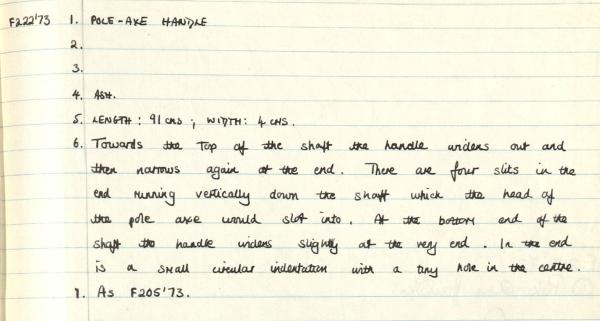 F222'73 1. POLE-AXE HANDLE
2.
3.
4. ASH.
5. LENGTH: 91 CMS ; WIDTH: 4 CMS.
6. Towards the top of the shaft the handle widens out and
then narrows again at the end. There are four slits in the
end running vertically down the shaft which the head of
the pole axe would slot into. At the bottom end of the
shaft the handle widens slightly at the very end. In the end
is a small circular indentation with a tiny hole in the centre.
7. As F205'73.